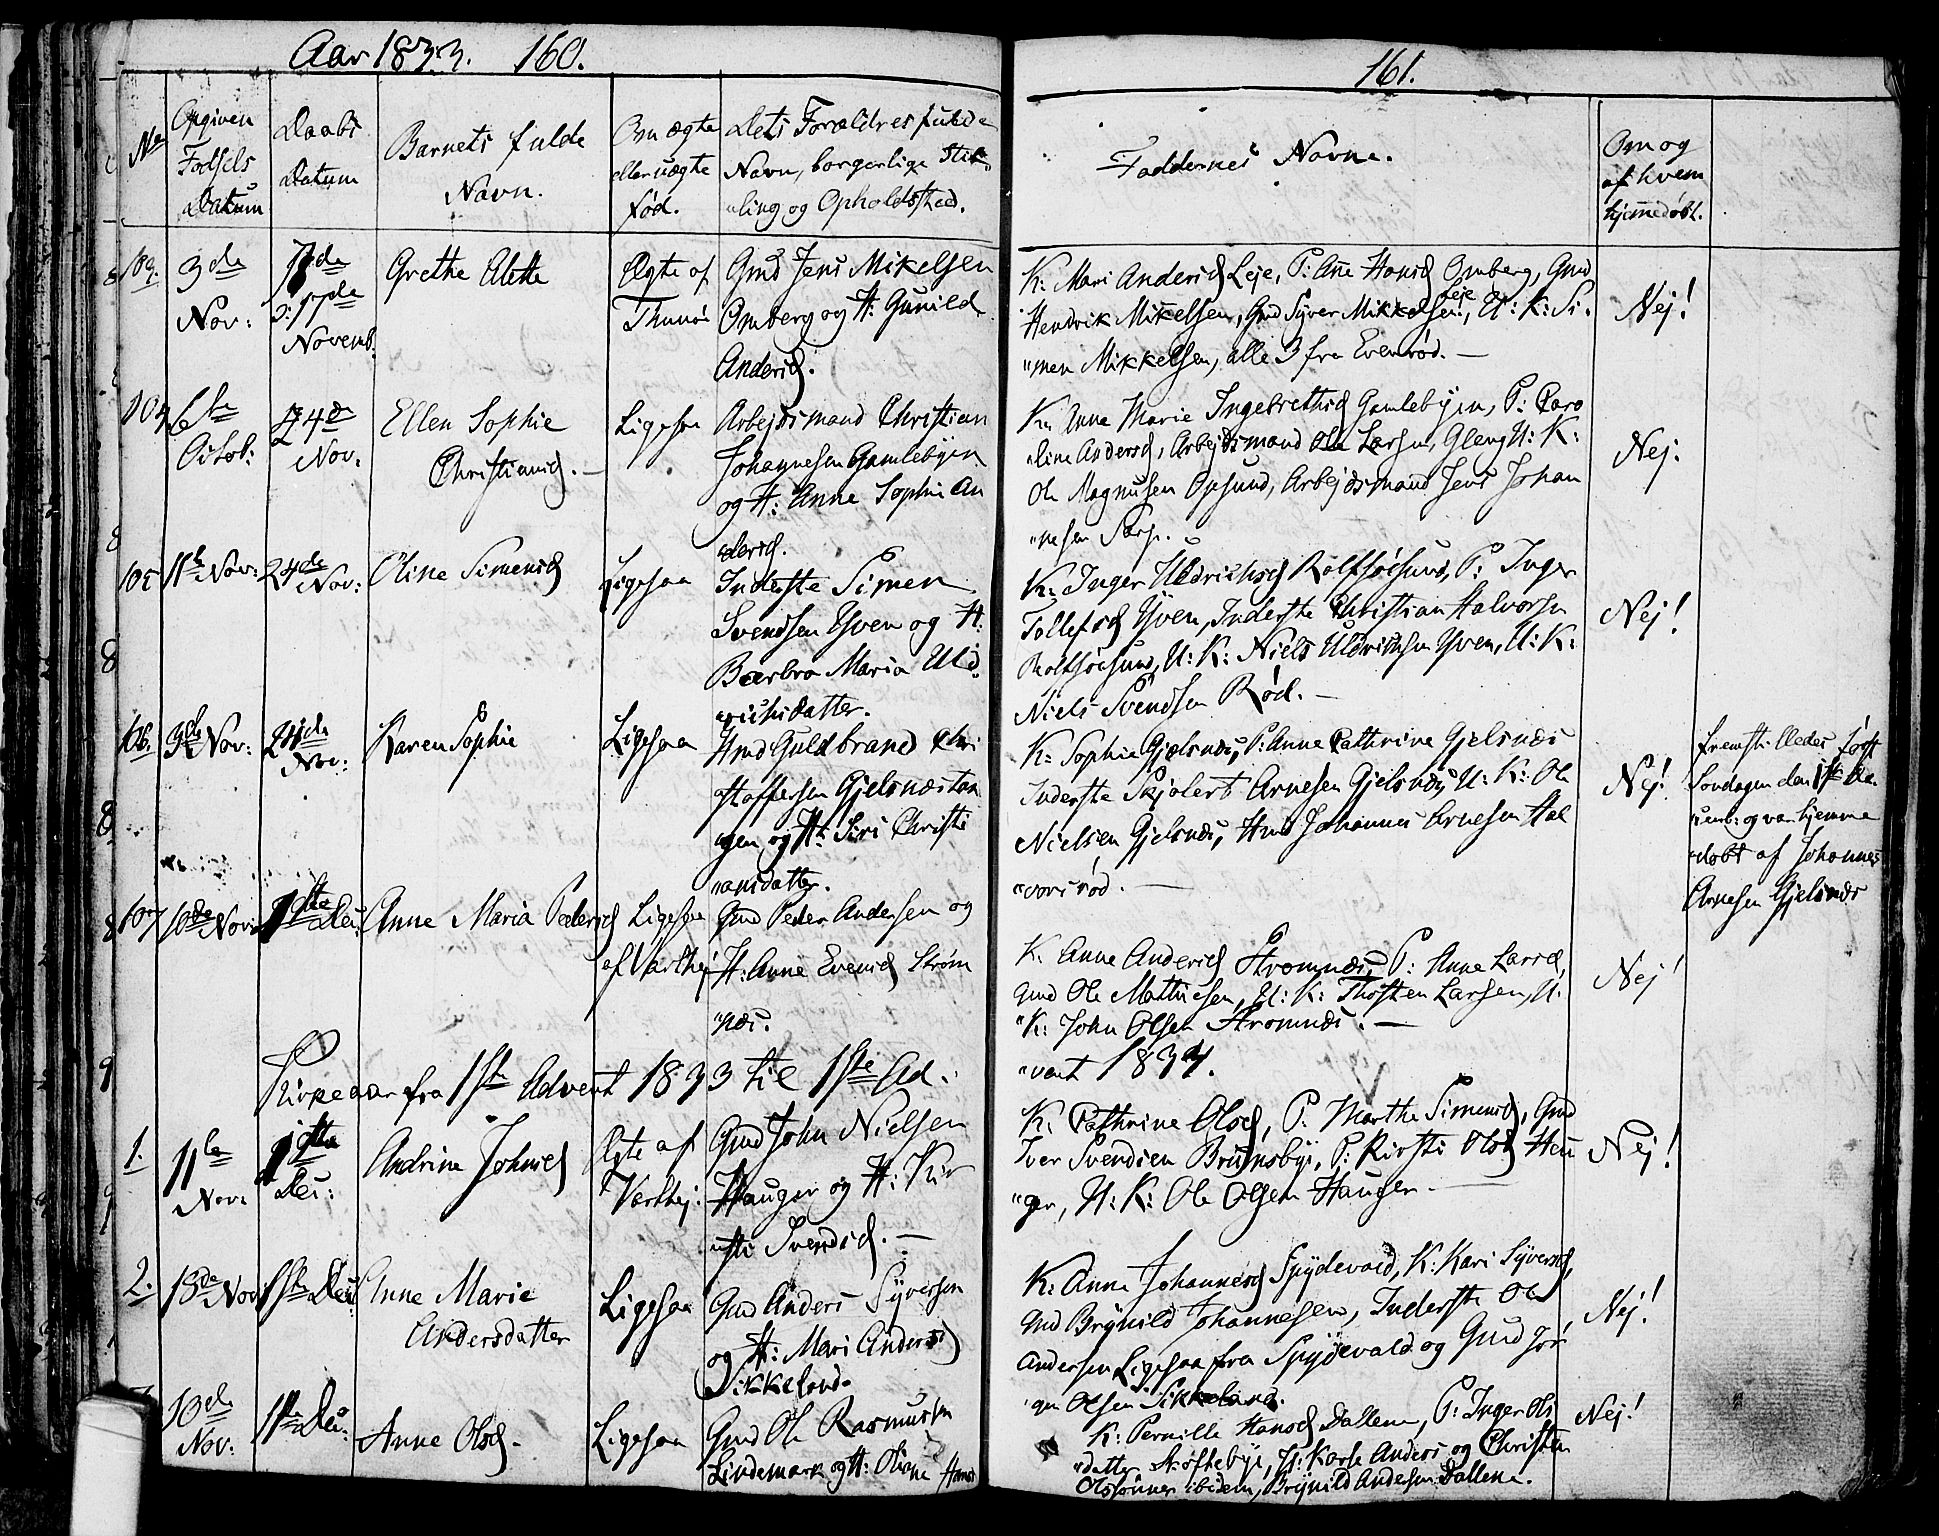 Aar 1833. 160.
No
Opgiven
Fødsels
Datum
Daabs
Datum
Barnets fulde
Navn.
Om ægte
eller uægte
fød.
Dets Forældres fulde
Navn, borgerlige Stil-
"ling og Opholdssted.
109.
3de
Nov:
17de
Novemb.
Grethe Alette
Ægte af
Gmd Jens Mikelsen
Omberg og H: Gunild
Andersd.
104
6te
Octob:
24de
Nov.
Ellen Sophie
Christiansd. —
Ligesaa
Arbejdsmand Christian
Johannesen Gamlebyen
og H: Anne Sophie An
"dersd.
105
11te Nov:
24de Nov:
Oline Simensd
Ligesaa
Inderste Simen
Svendsen Yven og H:
Barbro Maria Uld
"richsdatter.
106.
3de Nov:
24de Nov:
Karen Sophie
Ligesaa
Hmd Guldbrand Chri
"stoffersen Gjelsnæstan
"gen og H: Siri Christi
"ansdatter.
107
10de Nov:
1ste Dec:
Anne Maria Pedersd
Ligesaa
Gmd Peder Andersen og
H: Anne Evensd Strøm
"næs.
Kirkeaar fra 1ste Advent 1833 til 1ste Ad-
1.
11te
Nov:
1ste
Dec:
Andrine Johnsd
Ægte af
Gmd John Nielsen
Hauger og H: Kir
"sti Svendsd. —
2.
13de Nov
1ste Dec
Anne Marie
Andersdatter
Ligesaa
Gmd Anders Syversen
og H: Mari Andersd
Sikkeland.
10de
Nov:
1ste Dec:
Anne Olsd.
Ligesaa
Gmd Ole Rasmussen
Lindemark og H: Oline Hansd
161.
Faddernes Navne.
Om og
af hvem
hjemmedøbt.
K: Mari Andersd Leje, P: Anne Hansd Omberg, Gmd
Hendrik Mikelsen, Gmd Syver Mikkelsen Leje, U: K: Si-
"men Mikkelsen, alle 3 fra Evenrød. —
Nej!
K: Anne Marie Ingebrethsd Gamlebyen, P: Caro
"line Andersd, Arbejdsmand Ole Larsen, Gleng U: K:
Ole Magnusen Opsund, Arbejdsmand Jens Johan
"nesen Sarp.
Nej.
K: Inger Uldrichsd Rolfsøesund, P: Inger
Tollefsd Yven, Inderste Christian Halvorsen
Rolfsøesund, U: K: Niels Uldrichsen Yven, U: K:
Niels Svendsen Rød. —
Nej!
K: Sophie Gjelsnæs, P: Anne Cathrine Gjelsnæs
Inderste Arnesen Gjelsnæs, U: K: Ole
Nielsen Gjelsnæs, Hmd Johannes Arnesen Hal
"vorsrød. —
Nej!
fremstilledes først
Søndagen den 1ste De-
"cemb: og var hjemme
"døbt af Johannes
Arnesen Gjelsnæs
K. Anne Andersd Strømnæs, P: Anne Larsd,
Gmd Ole Mathiesen, U: K: Thosten Larsen, U:
"K: John Olsen Strømnæs. —
Nej!
"vent 1834.
K: Cathrine Olsd, P: Marthe Simensd, Gmd
Iver Svendsen Brunsbye, P: Kirsti Olsd Hau
"ger, U: K: Ole Olsen Hauger. —
Nej!
K: Anne Johannesd Spydevold, K: Kari Syversd,
Gmd Brynild Johannesen, Inderste Ole
Andersen Ligesaa fra Spydevold og Gmd Jør
"gen Olsen Sikkeland.
Nej!
K: Pernille Hansd Dallene, P: Inger Ols
"datter Skoftebye, U: Karle Anders og Christen
Olssønner ibidem, Brynild Andersen Dallene.
Nej!